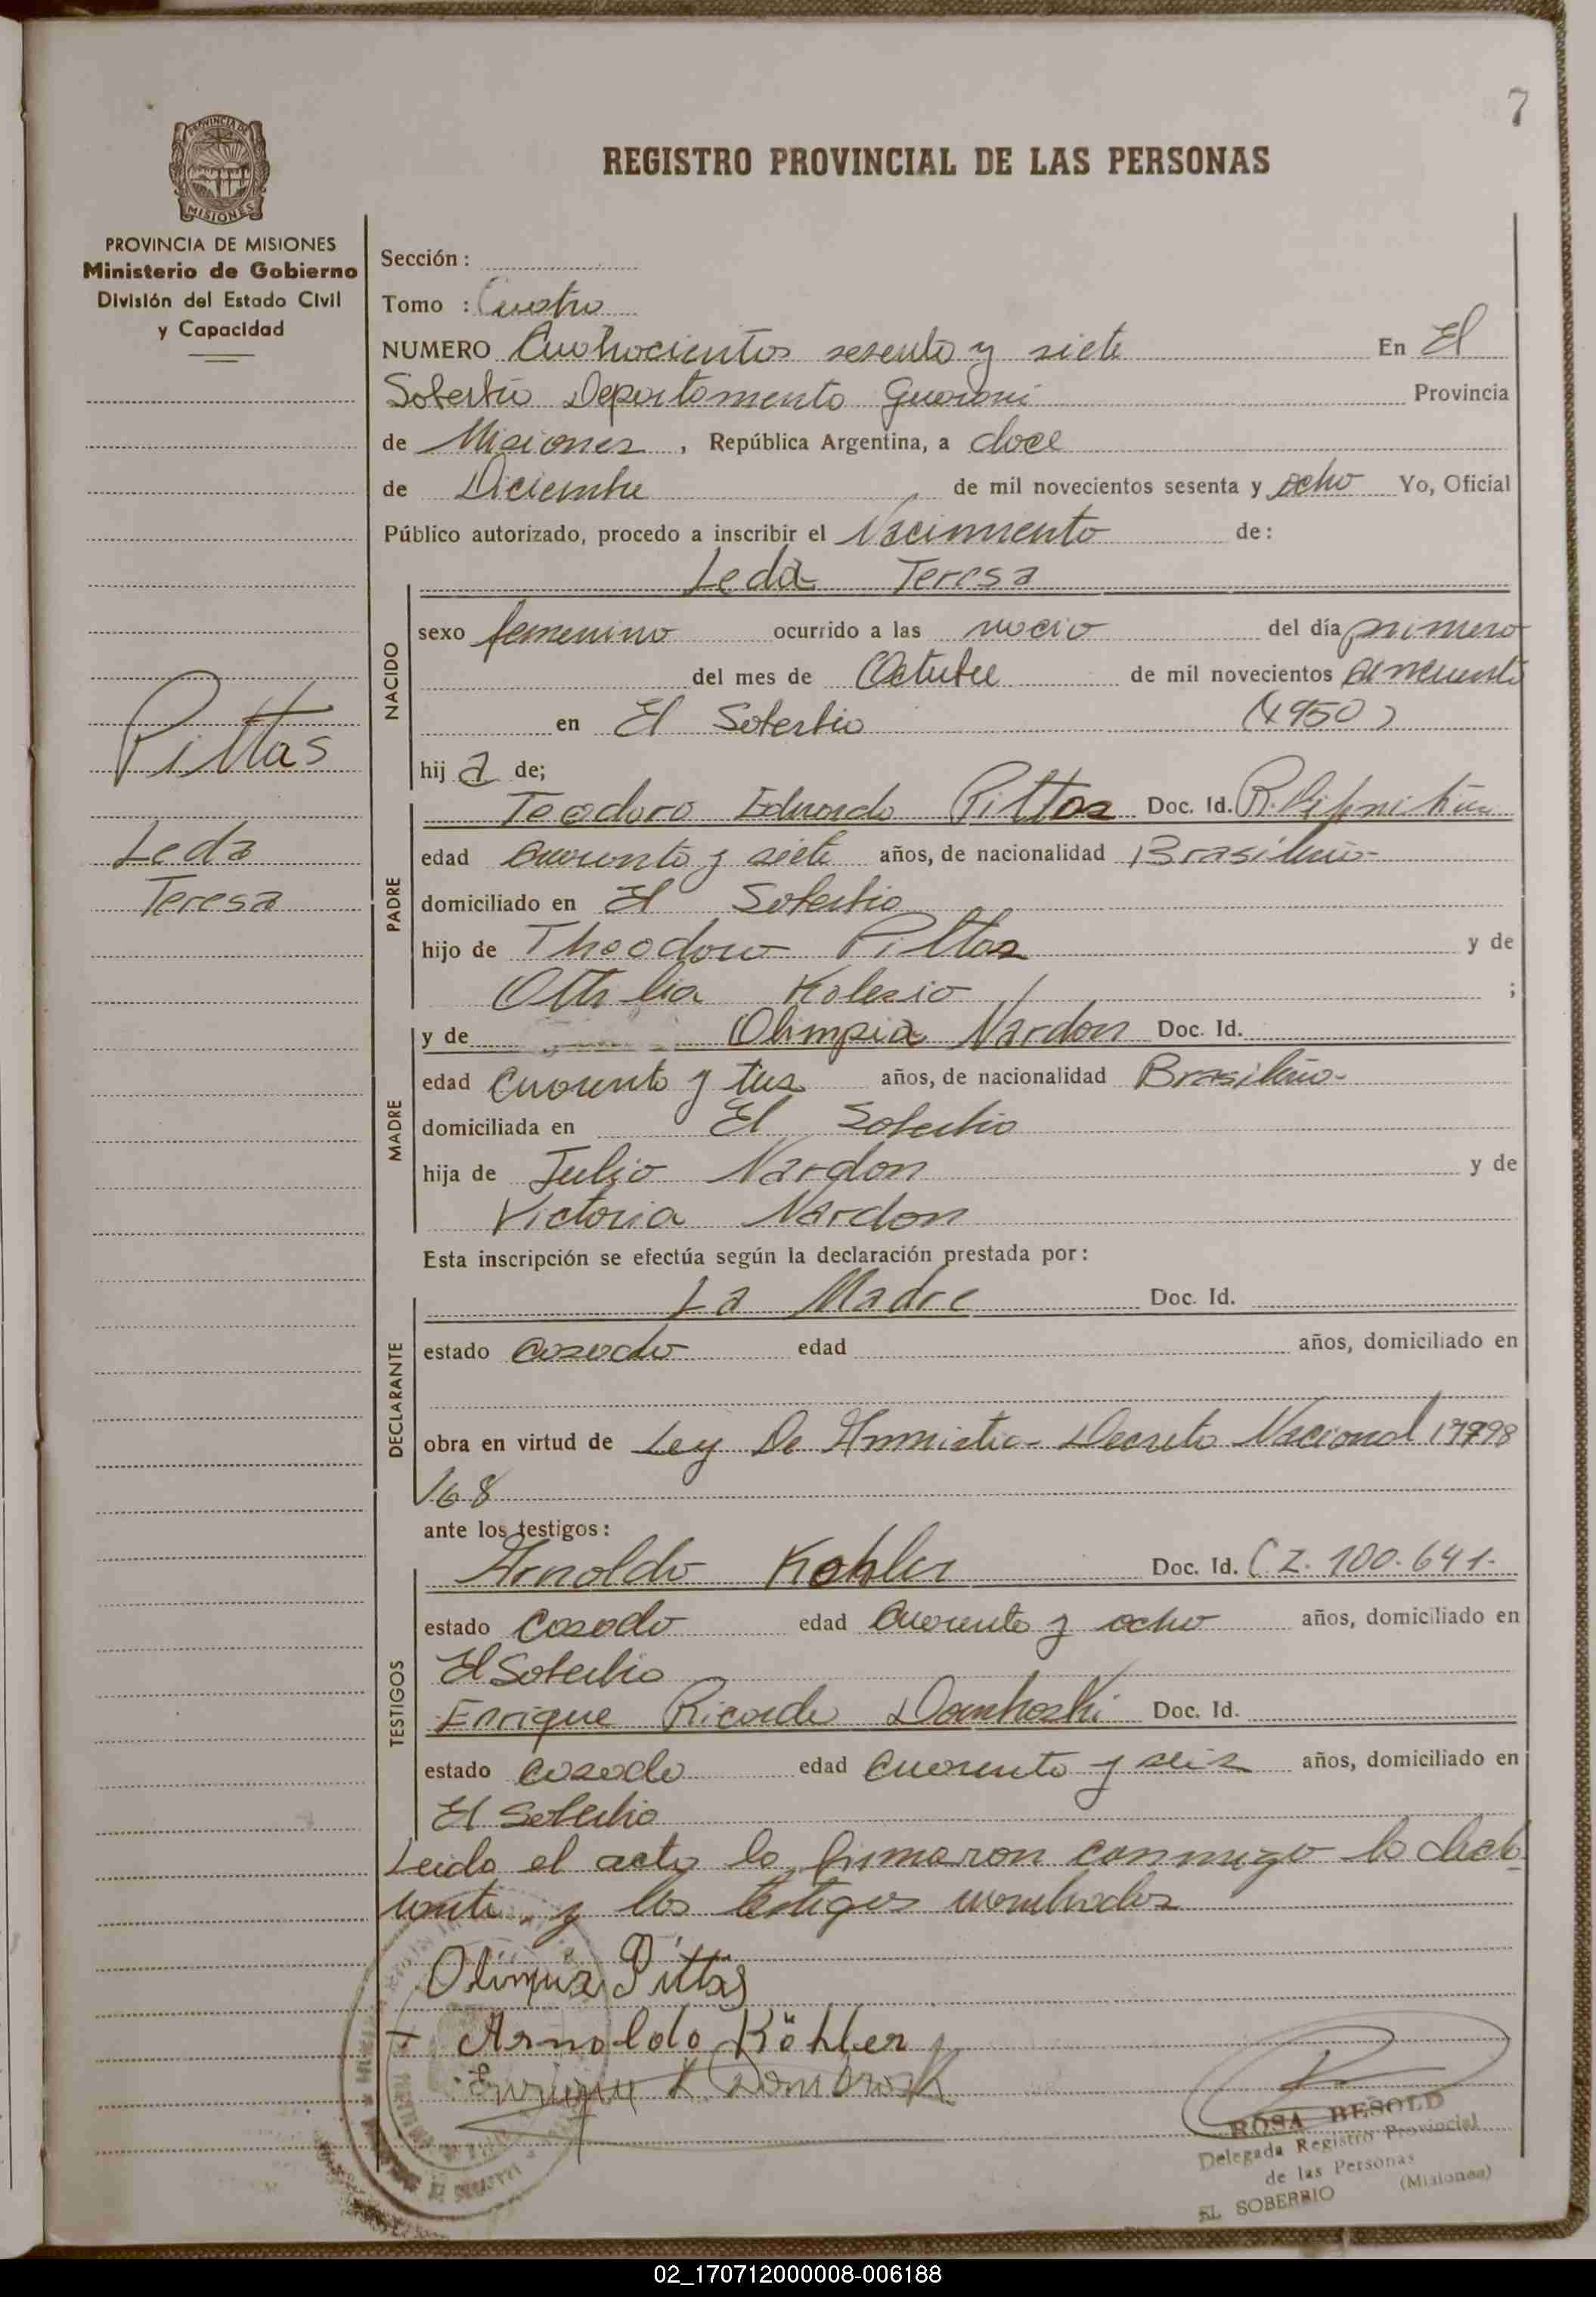 7
PROVINCIA DE
MISIONES
REGISTRO PROVINCIAL DE LAS PERSONAS
PROVINCIA DE MISIONES
Ministerio de Gobierno
División del Estado Civil
y Capacidad
Sección :
Tomo : Cuatro
NUMERO Cuatrocientos sesenta y siete En El
Soberbio Departamento Guaraní Provincia
de Misiones , República Argentina, a doce
de Diciembre de mil novecientos sesenta y ocho Yo, Oficial
Público autorizado, procedo a inscribir el Nacimiento de :
Leda Teresa
NACIDO
sexo femenino ocurrido a las del día primero
del mes de Octubre de mil novecientos cincuenta
en El Soberbio (1950)
hij a de;
Pittas
Leda
Teresa
PADRE
Teodoro Eduardo Pittas Doc. Id.
edad cuarenta y siete años, de nacionalidad Brasileño-
domiciliado en El Soberbio
hijo de Theodoro Pittas y de
Ottilia ;
MADRE
y de Olimpia Nardon Doc. Id.
edad cuarenta y tres años, de nacionalidad Brasileño-
domiciliada en El Soberbio
hija de Julio Nardon y de
Victoria Nardon
Esta inscripción se efectúa según la declaración prestada por :
DECLARANTE
La Madre Doc. Id.
estado casado edad años, domiciliado en
obra en virtud de Ley De Amnistia- Decreto Nacional
/68
ante los testigos :
TESTIGOS
Arnoldo Kohler Doc. Id. 100.641-
estado casado edad cuarenta y ocho años, domiciliado en
El Soberbio
Enrique Ricardo Doc. Id.
estado casado edad cuarenta y seis años, domiciliado en
El Soberbio
Leida el acta la firmaron conmigo la decla
rante y los testigos nombrados
Olimpia Pittas
Arnoldo Köhler
ROSA BESOLD
Delegada Registro Provincial
de las Personas
EL SOBERBIO (Misiones)
02_170712000008-006188